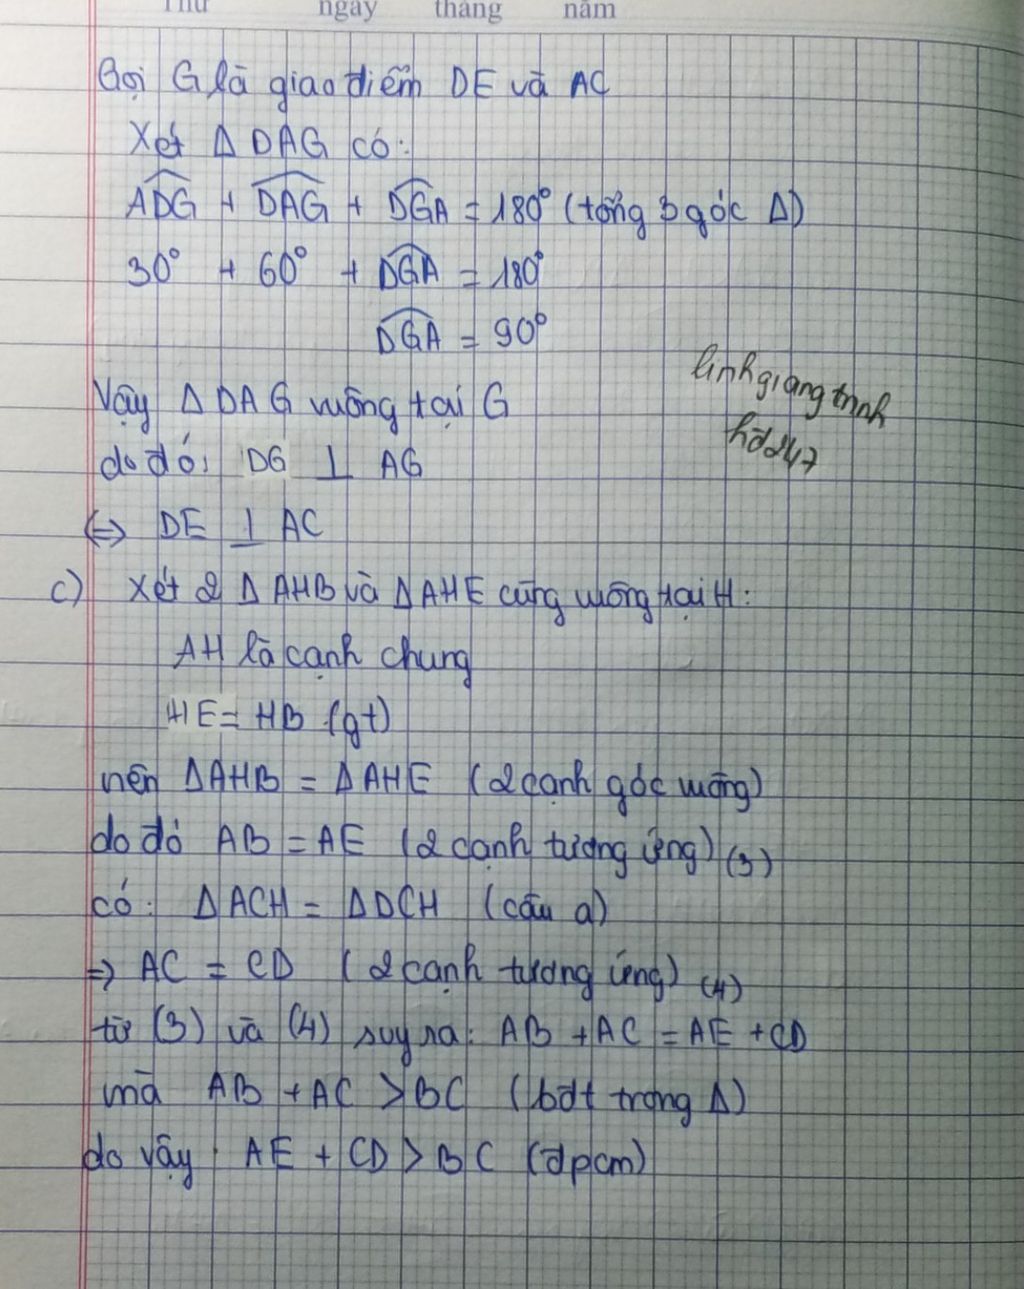 Thứ ngày tháng năm
Gọi G là giao điểm DE và AC
Xét Δ DAG có:
ADG + DAG + DGA = 180° (tổng 3 góc Δ)
30° + 60° + DGA = 180°
DGA = 90°
Vậy Δ DAG vuông tại G
linhgiangtrinh
hđ247
do đó: DG ⊥ AG
⇔ DE ⊥ AC
c) Xét 2 Δ AHB và Δ AHE cùng vuông tại H:
AH là cạnh chung
HE = HB (gt)
nên ΔAHB = ΔAHE (2 cạnh góc vuông)
do đó AB = AE (2 cạnh tương ứng) (3)
có: ΔACH = ΔDCH (câu a)
=> AC = CD (2 cạnh tương ứng) (4)
từ (3) và (4) suy ra: AB + AC = AE + CD
mà AB + AC > BC (bđt trong Δ)
do vậy: AE + CD > BC (đpcm)